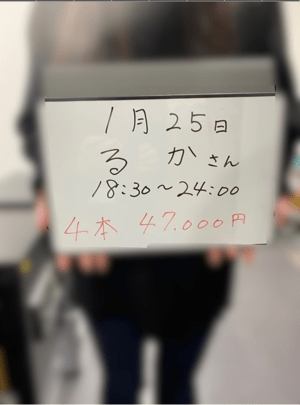 1月25日
るかさん
18:30〜24:00
4本 47.000円